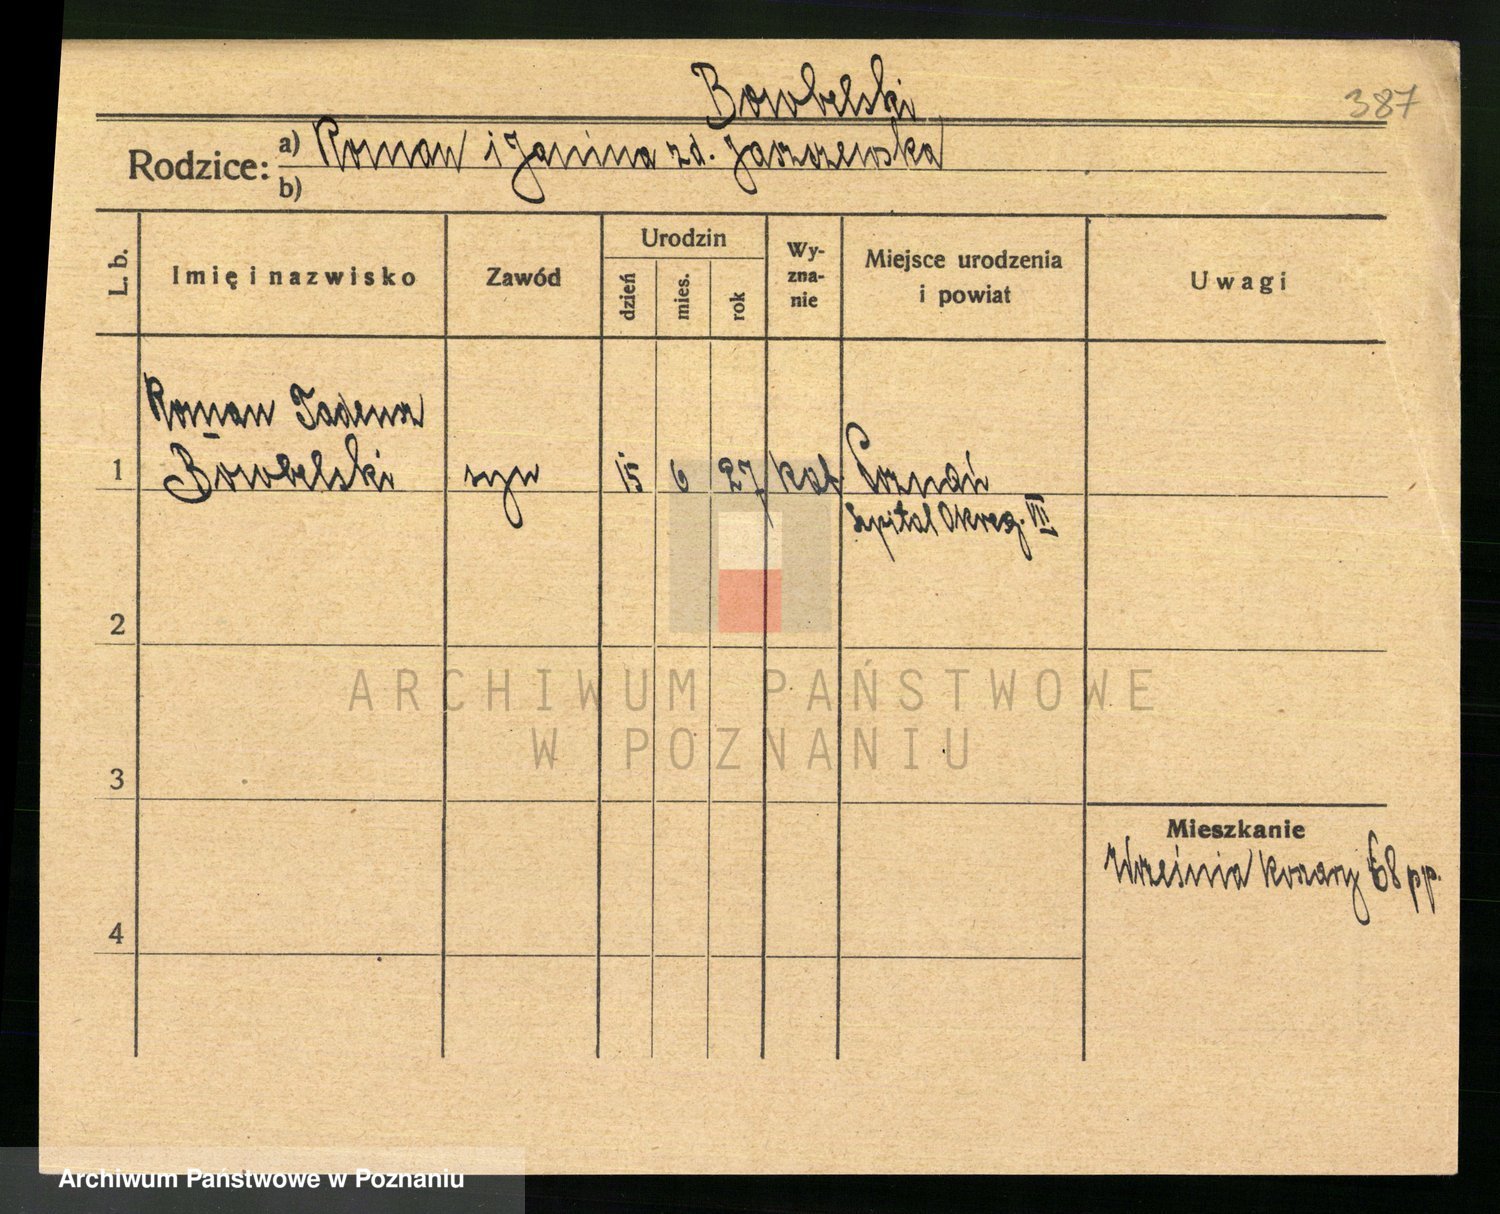 Borobelski
387
Rodzice: a) Roman i Janina zd. Jaszczewska
b)
L. b.
Imię i nazwisko
Zawód
Urodzin
dzień
mies.
rok
Wy-
zna-
nie
Miejsce urodzenia
i powiat
Uwagi
Roman Tadeusz
1 Borobelski syn 15 6 27 kat Poznań
szpital Okręg. VII
2
3
4
Mieszkanie
Września koszary 68 pp.
ARCHIWUM PAŃSTWOWE
W POZNANIU
Archiwum Państwowe w Poznaniu